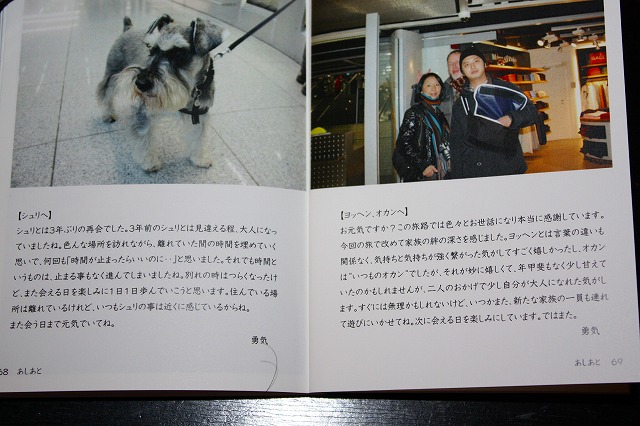 【シュリへ】
シュリとは3年ぶりの再会でした。3年前のシュリとは見違える程、大人になっ
ていましたね。色んな場所を訪れながら、離れていた間の時間を埋めていく
思いで、何回も「時間が止まったらいいのに・・」と思いました。それでも時間と
いうものは、止まる事もなく進んでしまいましたね。別れの時はつらくなったけ
ど、また会える日を楽しみに1日1日歩んでいこうと思います。住んでいる場
所は離れているけれど、いつもシュリの事は近くに感じているからね。
また会う日まで元気でいてね。
勇気
68 あしあと
【ヨッヘン、オカンへ】
お元気ですか?この旅路では色々とお世話になり本当に感謝しています。
今回の旅で改めて家族の絆の深さを感じました。ヨッヘンとは言葉の違いも
関係なく、気持ちと気持ちが強く繋がった気がしてすごく嬉しかったし、オカン
は"いつものオカン"でしたが、それが妙に嬉しくて、年甲斐もなく少し甘えて
いたのかもしれませんが、二人のおかげで少し自分が大人になれた気がし
ます。すぐには無理かもしれないけど、いつかまた、新たな家族の一員も連れ
て遊びにいかせてね。次に会える日を楽しみにしています。ではまた。
勇気
あしあと 69